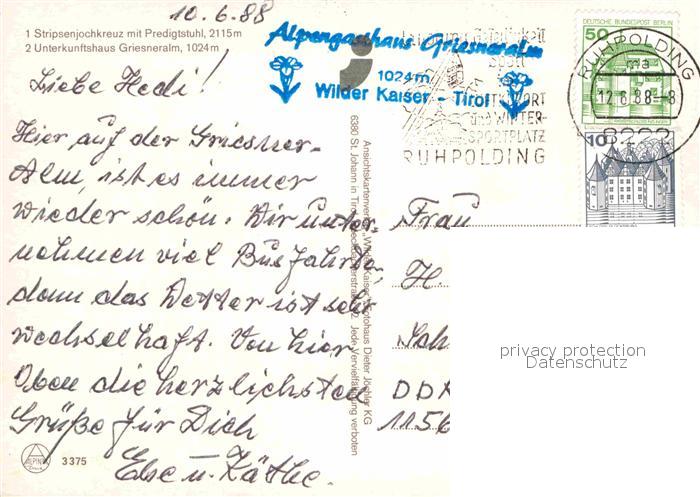 10.6.88
1 Stripsenjochkreuz mit Predigtstuhl, 2115m
2 Unterkunftshaus Griesneralm, 1024m
Alpengasthaus Griesneralm
1024m
Wilder Kaiser - Tirol
Liebe Hedi!
Hier auf der Griesner-
Alm, ist es immer
wieder schön. Wir unter-
nehmen viel Busfahrten,
denn das Wetter ist sehr
wechselhaft. Von hier
Oben die herzlichsten
Grüße für Dich
Else u. Käthe.
ALPINA
3375
Ansichtskartenverlag „Wilder Kaiser" Fotohaus Dieter Jöchler KG
6380 St. Johann in Tirol, Jede Vervielfältigung verboten
SPORT
UND WINTER-
SPORTPLATZ
RUHPOLDING
DEUTSCHE BUNDESPOST BERLIN
50
RUHPOLDING
12.6.88-8
8222
10
Frau
H.
Sch
DDR
1156
privacy protection
Datenschutz